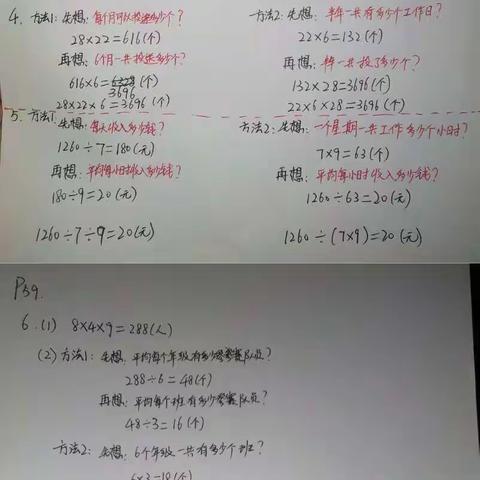 4. 方法1: 先想: 每个月可以投递多少个?
28×22=616(个)
再想: 6个月一共投递多少个?
616×6=6328(个)
3696
28×22×6=3696(个)
方法2: 先想: 半年一共有多少个工作日?
22×6=132(个)
再想: 半年一共投了多少个?
132×28=3696(个)
22×6×28=3696(个)
5. 方法1: 先想: 每天收入多少钱?
1260÷7=180(元)
再想: 平均每小时收入多少钱?
180÷9=20(元)
1260÷7÷9=20(元)
方法2: 先想: 一个星期一共工作多少个小时?
7×9=63(个)
再想: 平均每小时收入多少钱?
1260÷63=20(元)
1260÷(7×9)=20(元)
P39.
6.(1) 8×4×9=288(人)
(2)方法1: 先想: 平均每个年级有多少参赛队员?
288÷6=48(个)
再想: 平均每个班有多少参赛队员?
48÷3=16(个)
方法2: 先想: 6个年级一共有多少个班?
6×3=18(个)